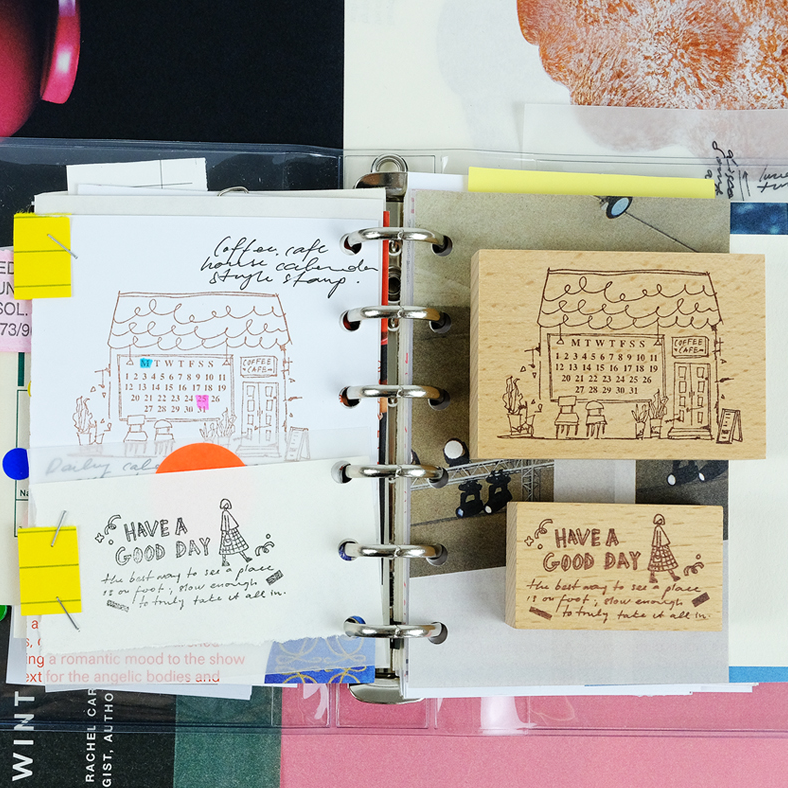 Coffee. cafe
house calender
style stamp.
M T W T F S S
1 2 3 4 5 6 7 8 9 10 11
12 13 14 15 16 17 18 19
20 21 22 23 24 25 26
27 28 29 30 31
COFFEE
CAFE
Daily
HAVE A
GOOD DAY
the best way to see a place
is on foot, slow enough
to truly take it all in.
M T W T F S S
1 2 3 4 5 6 7 8 9 10 11
12 13 14 15 16 17 18 19
20 21 22 23 24 25 26
27 28 29 30 31
COFFEE
CAFE
HAVE A
GOOD DAY
the best way to see a place
is on foot, slow enough
to truly take it all in.
ED
UN
SOL.
73/9
Na
a
ng a romantic mood to the show
ext for the angelic bodies and
WINT
RACHEL CAR
GIST, AUTHO